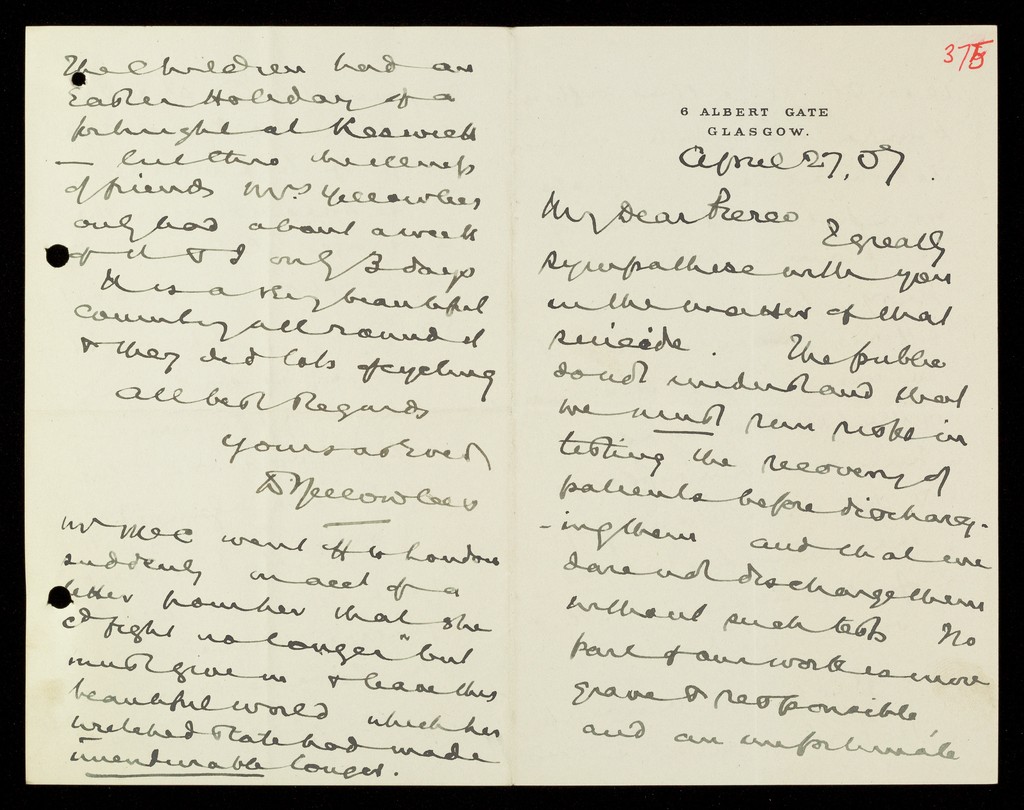 375
6 ALBERT GATE
GLASGOW.
April 27, 07.
My Dear Pierce
I greatly
sympathise with you
in the matter of that
suicide. The public
do not understand that
we must run risks in
testing the recovery of
patients before discharg-
-ing them and that we
dare not discharge them
without such tests No
part of our work is more
grave & responsible
and an unfortunate
The Children had an
Easter Holiday of a
fortnight at Keswick
— but thro the illness
of friends Mrs Yellowlees
only had about a week
of it & I only 3 days
It is a very beautiful
country all round it
& they did lots of cycling
All best Regards
Yours as Ever
D Yellowlees
Mr McC went to London
suddenly on acct of a
letter from her that she
cd fight no longer" but
must give in & leave this
beautiful world which her
wretched state had made
unendurable longer.